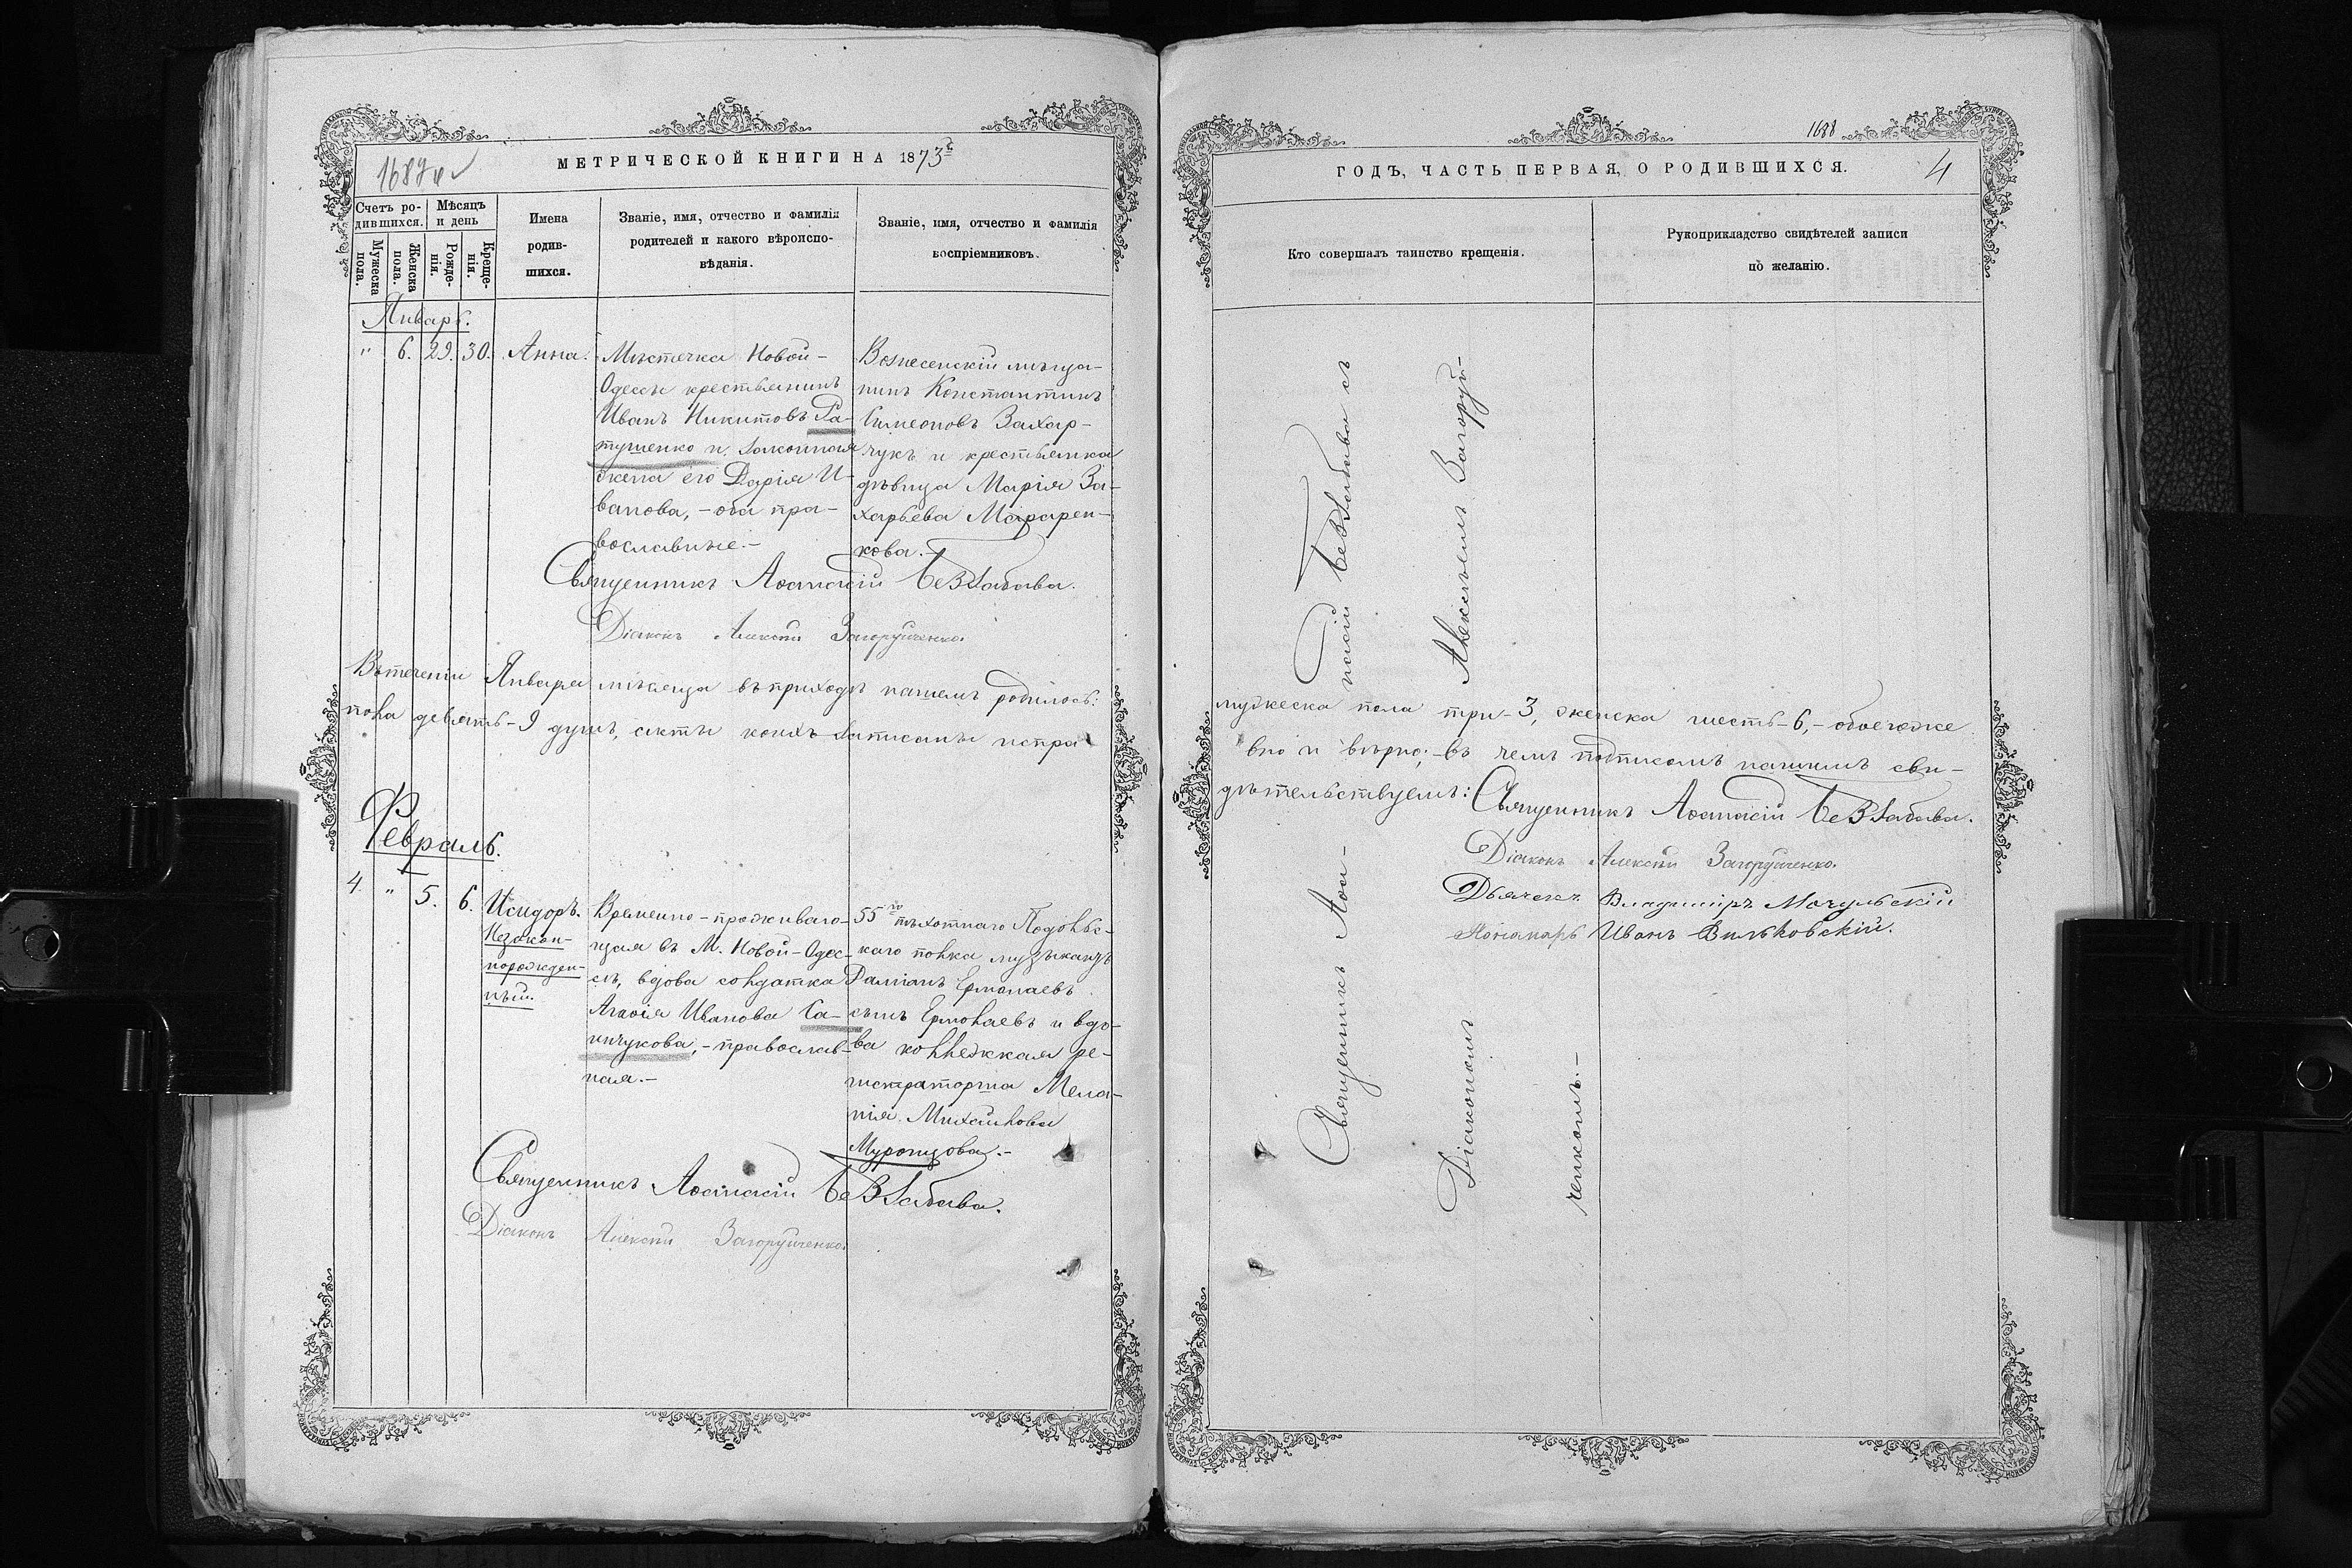 1687
МЕТРИЧЕСКОЙ КНИГИ НА 1873
Счетъ ро-
дившихся.
Мѣсяцъ
и день
Мужеска
пола.
Женска
пола.
Рожде-
нія.
Креще-
нія.
Имена
родив-
шихся.
Званіе, имя, отчество и фамилія
родителей и какого вѣроиспо-
вѣданія.
Званіе, имя, отчество и фамилія
воспріемниковъ.
Январь.
" 6. 29. 30. Анна.
Мѣстечка Новой-
Одессы крестьянинъ
Иванъ Никитовъ Ра-
тушенко и законная
жена его Дарія И-
ванова, - оба пра-
вославные.-
Вознесенскій мѣща-
нинъ Константинъ
Симеоновъ Захар-
чукъ и крестьянка
дѣвица Марія За-
харьева Макарен-
кова.-
Священникъ Аѳанасій Беззабава.
Діаконъ Алексѣй Загоруйченко
Втеченіи Января мѣсяца въ приходѣ нашемъ родилось:
пола девять-9 душъ, акты коихъ записаны испра
Февраль.
4. " 5. 6. Исидоръ.
Незакон-
норожден-
ный.
Временно-проживаю-
щая въ М. Новой-Одес-
сѣ, вдова солдатка
Агаѳія Иванова Са-
нчукова, - православ-
ная.-
55го пѣхотнаго Подольс-
каго полка музыкантъ
Даміанъ Ермолаевъ
сынъ Ермолаевъ и вдо-
ва коллежкая ре-
гистраторша Мела-
нія Михайлова
Муромцова.-
Священникъ Аѳанасій Беззабава.
Діаконъ Алексѣй Загоруйченко
1688
ГОДЪ, ЧАСТЬ ПЕРВАЯ, О РОДИВШИХСЯ.
4
Кто совершалъ таинство крещенія.
Рукоприкладство свидѣтелей записи
по желанію.
Священникъ Аѳа-
насій Беззабава съ
Діакономъ Алексѣемъ Загоруй-
ченкомъ.-
мужеска пола три-3, женска шесть-6,-обоегоже
вно и вѣрно;-въ чемъ подписомъ нашимъ сви-
дѣтельствуемъ: Священникъ Аѳанасій Беззабава.
Діаконъ Алексѣй Загоруйченко.
Дьячекъ Владиміръ Мочульскій
Пономарь Иванъ Вильковскій.